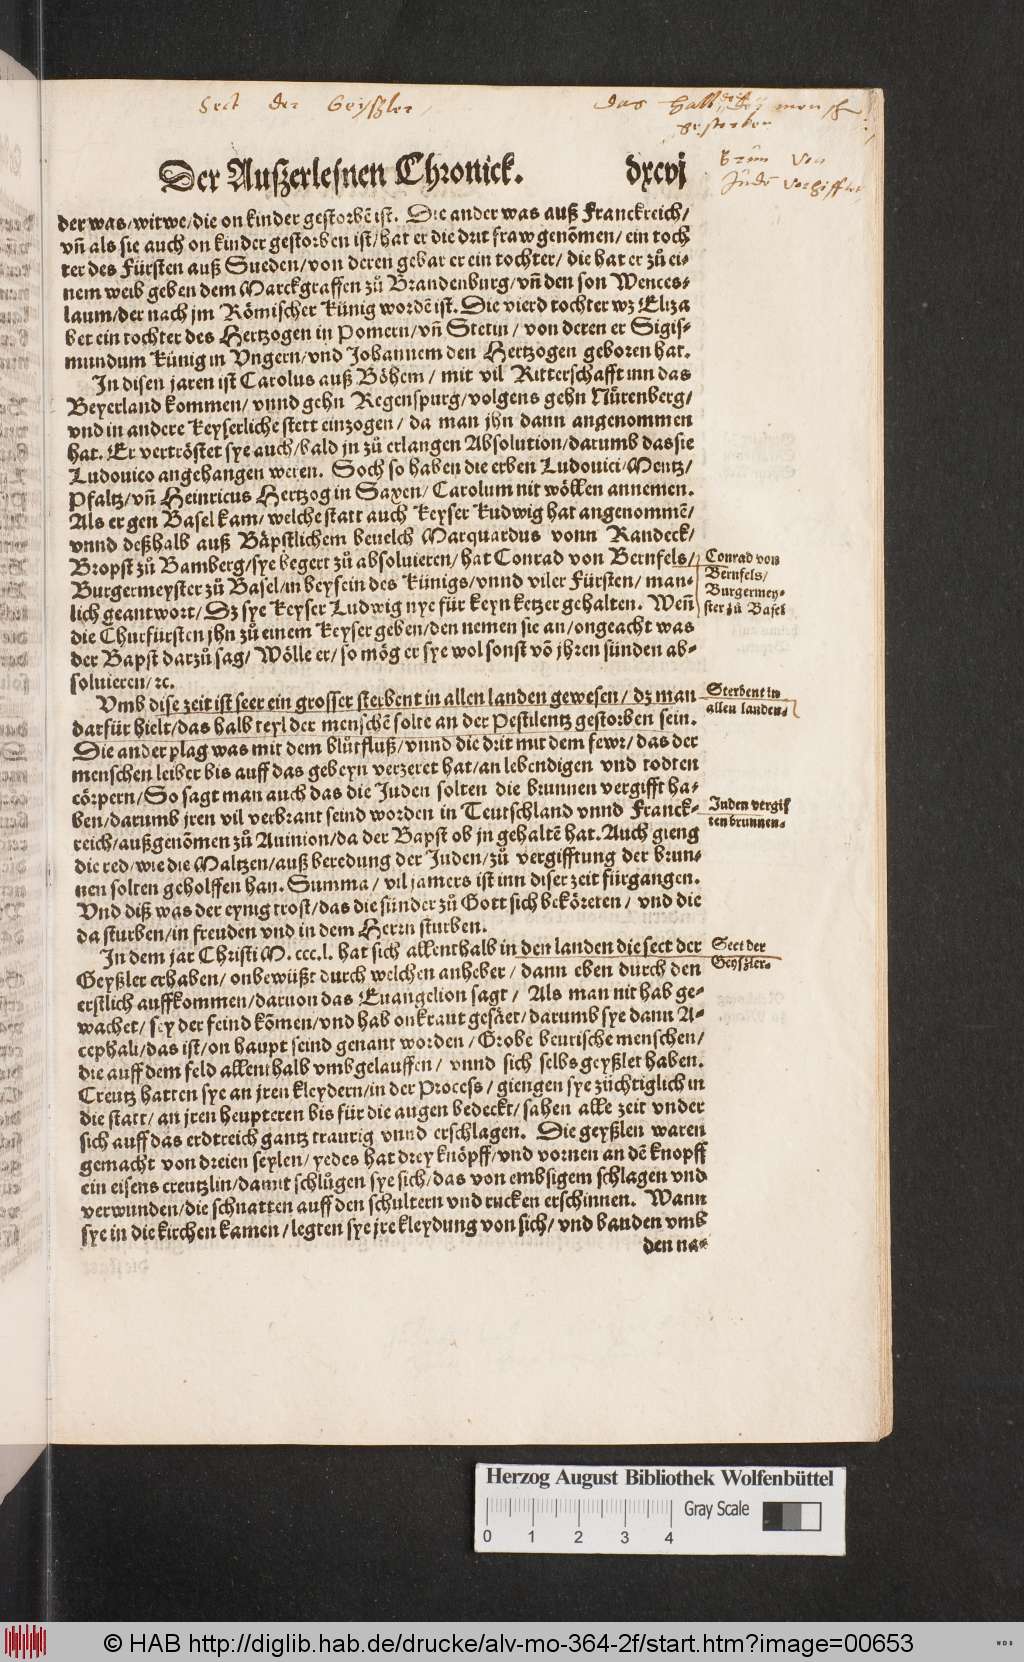 Sect der Geyßler
das halb
gestorben
Der Auszerlesnen Chronick. dxcvj
Vergifft
der was/witwe/die on kinder gestorbẽ ist. Die ander was auß Franckreich/
vñ als sie auch on kinder gestorben ist/hat er die drit fraw genõmen/ein toch
ter des Fürsten auß Sueden/von deren gebar er ein tochter/die hat er zů ei-
nem weib geben dem Marckgraffen zů Brandenburg/vñ den son Wences-
laum/der nach jm Römischer Künig wordẽ ist. Die vierd tochter wz Eliza
bet ein tochter des Hertzogen in Pomern/vñ Stetin/von deren er Sigis-
mundum Künig in Vngern/vnd Johannem den Hertzogen geboren hat.
In disen jaren ist Carolus auß Böhem/mit vil Ritterschafft inn das
Beyerland kommen/vnnd gehn Regenspurg/volgens gehn Nürenberg/
vnd in andere Keyserliche stett einzogen/da man jhn dann angenommen
hat. Er vertröstet sye auch/bald jn zů erlangen Absolution/darumb das sie
Ludouico angehangen weren. Soch so haben die erben Ludouici/Mentz/
Pfaltz/vñ Heinricus Hertzog in Saxen/Carolum nit wöllen annemen.
Als er gen Basel kam/welche statt auch Keyser Ludwig hat angenommẽ/
vnnd deßhalb auß Bäpstlichem beuelch Marquardus vonn Randeck/
Bropst zů Bamberg/sye begert zů absoluieren/hat Conrad von Bernfels/
Burgermeyster zů Basel/in beysein des Künigs/vnnd viler Fürsten/man-
lich geantwort/Dz sye Keyser Ludwig nye für keyn ketzer gehalten. Weñ
die Churfürsten jhn zů einem Keyser geben/den nemen sie an/ongeacht was
der Bapst darzů sag/Wölle er/so mög er sye wol sonst võ jhren sünden ab-
soluieren/ꝛc.
Conrad von
Bernfels/
Burgermey-
ster zů Basel
Vmb dise zeit ist seer ein grosser sterbent in allen landen gewesen/dz man
darfür hielt/das halb teyl der menschẽ solte an der Pestilentz gestorben sein.
Die ander plag was mit dem blůtfluß/vnnd die drit mit dem fewr/das der
menschen leiber bis auff das gebeyn verzeret hat/an lebendigen vnd todten
cörpern/So sagt man auch das die Juden solten die brunnen vergifft ha-
ben/darumb jren vil verbrant seind worden in Teutschland vnnd Franck-
reich/außgenõmen zů Auinion/da der Bapst ob jn gehaltẽ hat. Auch gieng
die red/wie die Maltzen/auß beredung der Juden/zů vergifftung der brun-
nen solten geholffen han. Summa/vil jamers ist inn diser zeit fürgangen.
Vnd diß was der eynig trost/das die sünder zů Gott sich beköreten/vnd die
da sturben/in freuden vnd in dem Herrn sturben.
Sterbent in
allen landen.
Juden vergif
ten brunnen.
In dem jar Christi M. ccc.l. hat sich allenthalb in den landen die sect der
Geyßler erhaben/onbewüßt durch welchen anheber/dann eben durch den
erstlich auffkommen/daruon das Euangelion sagt/Als man nit hab ge-
wachet/sey der feind kõmen/vnd hab onkraut gesäet/darumb sye dann A-
cephali/das ist/on haupt seind genant worden/Grobe beurische menschen/
die auff dem feld allenthalb vmbgelauffen/vnnd sich selbs geyßlet haben.
Creutz hatten sye an jren kleydern/in der Process/giengen sye züchtiglich in
die statt/an jren heupteren bis für die augen bedeckt/sahen alle zeit vnder
sich auff das erdtreich gantz traurig vnnd erschlagen. Die geyßlen waren
gemacht von dreien seylen/yedes hat drey knöpff/vnd vornen an dẽ knopff
ein eisens creutzlin/damit schlůgen sye sich/das von embsigem schlagen vnd
verwunden/die schnatten auff den schultern vnd rucken erschinnen. Wann
sye in die kirchen kamen/legten sye jre kleydung von sich/vnd banden vmb
Sect der
Geyszler.
den na-
Herzog August Bibliothek Wolfenbüttel
Gray Scale
0 1 2 3 4
© HAB http://diglib.hab.de/drucke/alv-mo-364-2f/start.htm?image=00653